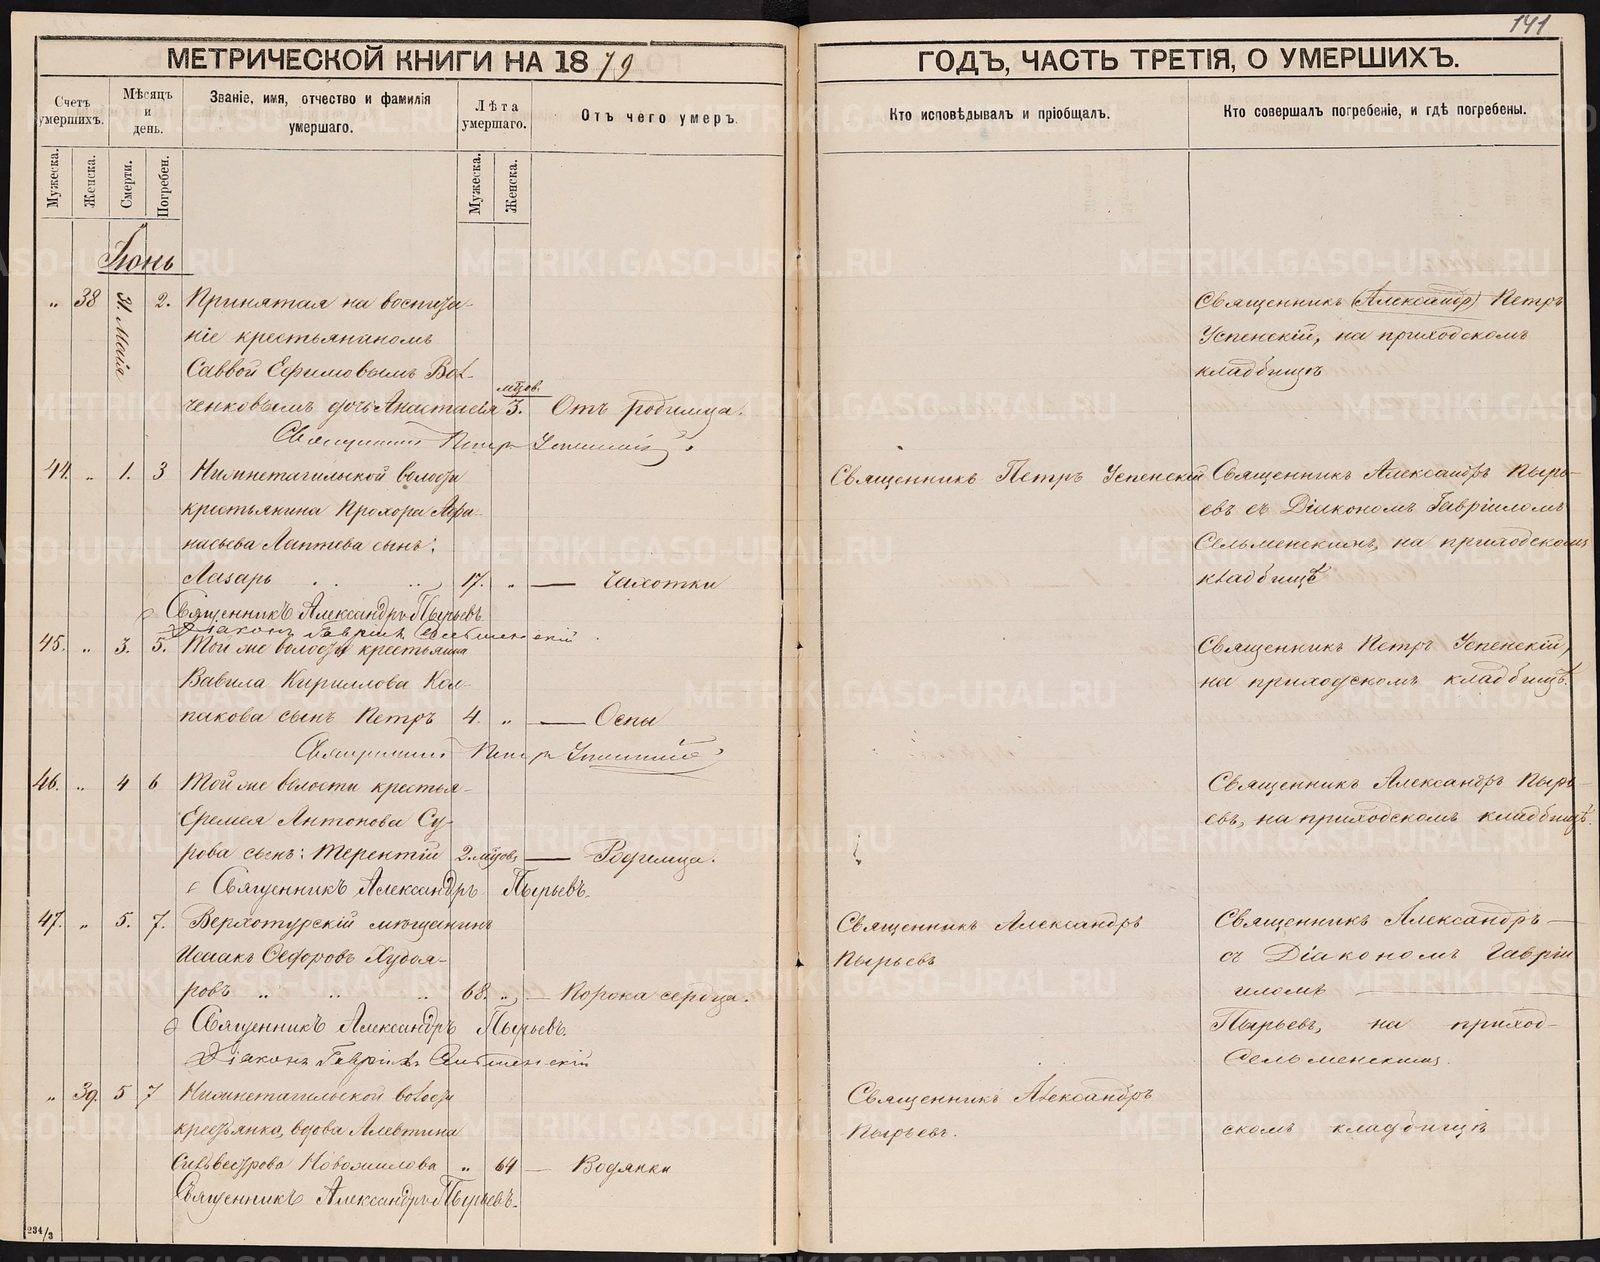 141
МЕТРИЧЕСКОЙ КНИГИ НА 1879
ГОДЪ, ЧАСТЬ ТРЕТІЯ, О УМЕРШИХЪ.
Счетъ умершихъ.
Мѣсяцъ и день.
Званіе, имя, отчество и фамилія умершаго.
Лѣта умершаго.
Отъ чего умеръ.
Кто исповѣдывалъ и пріобщалъ.
Кто совершалъ погребеніе, и гдѣ погребены.
Мужеска.
Женска.
Смерти.
Погребен.
Мужеска.
Женска.
Іюнь
" 38 31. Маія 2. Принятая на воспита-
ніе крестьяниномъ
Саввой Ефимовымъ Вот-
ченковымъ дочь Анастасія мцов. 3. Отъ родимца.
Священникъ Петръ Успенскій
Священникъ (Александр) Петръ
Успенскій, на приходскомъ
кладбищѣ
44. " 1. 3 Нижнетагильской волости
крестьянина Прохора Афа-
насьева Лаптева сынъ:
Лазарь 17. " — Чахотки
Священникъ Александръ Пырьевъ
Діаконъ Гавріилъ Сельменскій
Священникъ Петръ Успенскій
Священникъ Александръ Пырь-
евъ съ Діакономъ Гавріиломъ
Сельменскимъ, на приходскомъ
кладбищѣ
45. " 3. 5. Той же волости крестьянина
Вавила Кириллова Кол-
пакова сынъ Петръ 4. " — Оспы
Священникъ Петръ Успенскій
Священникъ Петръ Успенскій,
на приходскомъ кладбищѣ.
46. " 4 6 Той же волости крестья-
Еремея Антонова Су-
рова сынъ: Терентій 2. мцов. — Родимца.
Священникъ Александръ Пырьевъ.
Священникъ Александръ Пырь-
евъ, на приходскомъ кладбищѣ.
47. " 5. 7. Верхотурскій мѣщанинъ
Исаакъ Ѳедоровъ Худоя-
ровъ " " " 68. " — Порока сердца.
Священникъ Александръ Пырьевъ.
Діаконъ Гавріилъ Сельменскій
Священникъ Александръ
Пырьевъ
Священникъ Александръ —
съ Діакономъ Гаврiи
иломъ —
Пырьевъ, на приход-
Сельменскимъ.
" 39. 5 7 Нижнетагильской волости
крестьянка, вдова Алевтина
Сильвестрова Новожилова " 64 — Водянки
Священникъ Александръ Пырьевъ.
Священникъ Александръ
Пырьевъ.
скомъ кладбищѣ
234/3
METRIKI.GASO-URAL.RU